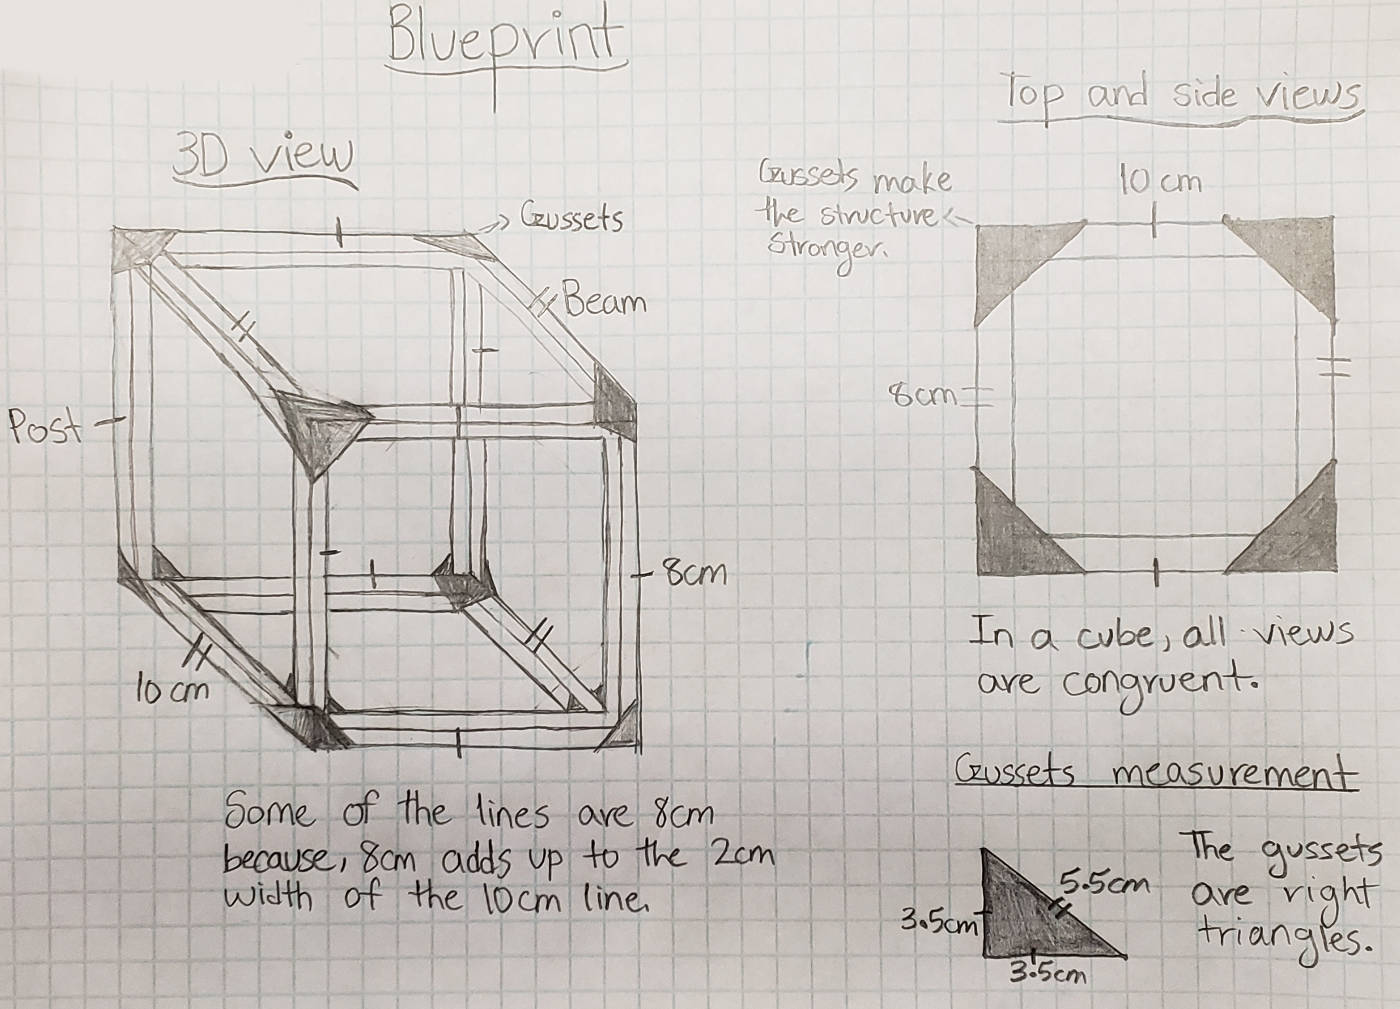 Blueprint
3D view
Gussets
Beam
Post
8cm
10 cm
Some of the lines are 8cm
because, 8cm adds up to the 2cm
width of the 10cm line.
Top and side views
Gussets make
the structure
stronger.
10 cm
8cm
In a cube, all views
are congruent.
Gussets measurement
5.5cm
3.5cm
3.5cm
The gussets
are right
triangles.